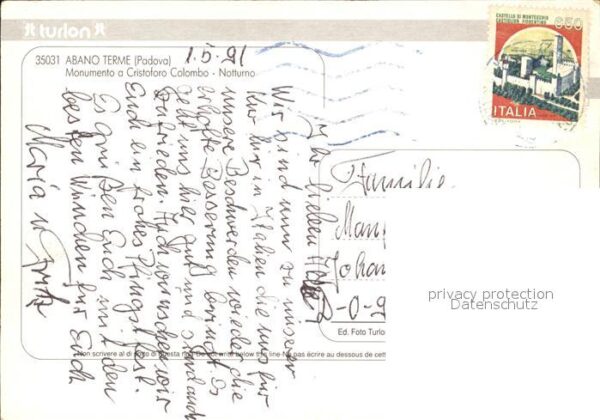 turlon
35031 ABANO TERME (Padova)
Monumento a Cristoforo Colombo - Notturno
1.5.91
CASTELLO DI MONTECCHIO
CASTIGLION FIORENTINO
650
ITALIA
Ihr Lieben
Wir sind nun zu unserer
Kur hier in Italien die uns für
unsere Beschwerden wieder die
erhoffte Besserung bringt. Es
geht uns hier gut und sind auch
zufrieden. Auch wünschen wir
Euch ein frohes Pfingstfest.
Es grüßen Euch mit den
besten Wünschen für Euch
Maria u. Fritz
Familie
Man
Johan
-0-9
privacy protection
Datenschutz
Ed. Foto Turlo
Non scrivere al di sotto di questa riga - Do not write below this line - Ne pas écrire au dessous de cett